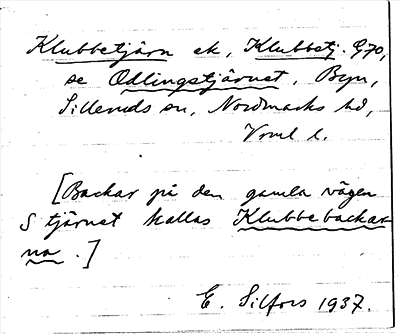 Klubbetjärn ek, Klubbetj. G70,
se Odlingstjärnet, Byn,
Silleruds sn, Nordmarks hd,
Vrml l.
[Backar på den gamla vägen
S tjärnet kallas Klubbebackar
na.]
E. Silfors 1937.